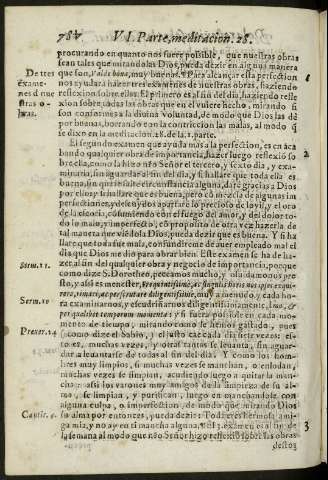 788 VI. Parte, meditacion. 28.
procurando en quanto nos fuere possible, que nuestras obras
sean tales que mirandolas Dios, pueda dezir en alguna manera
De tres que son, Valde bona, muy buenas. Para alcançar esta perfection 1
exame- nos ayudará hazer tres examenes de nuestras obras, haziendo
nes d nue reflexion sobre ellas. El primero es al fin del dia, haziendo refle
stras o- xion sobre todas las obras que en el vuiere hecho, mirando si
bras. son conformes a la diuina voluntad, de modo que Dios las dé
por buenas, borrando con la contricion las malas, al modo q̃
se dixo en la meditacion. 28. de la 1. parte.
El segundo examen que ayuda mas a la perfection, es en aca 2
bando qualquier obra de importancia, hazer luego reflexió so
bre ella, como la hizo nro Señor el tercero, y sexto dia, y exa
minarla, sin aguardar al fin del dia, y si hallare que toda ella es
buena, sin quitarsele circunstancia alguna, daré gracias a Dios
por ello; y si hallare que es buena, pero cõ mezcla de algunas im
perfectiones, y desde luego apartaré lo precioso de lo vil, y el oro
de la escoria, consumiendo con el fuego del amor, y del dolor to
do lo malo, y imperfecto, cõ proposito de otra vez hazerla de
tal manera que viendola Dios, pueda dezir que es buena. Y si ha
llare que toda fue mala, confundireme de auer empleado mal el
dia que Dios me dio para obrar bien. Este examen se ha de ha-
zer al fin del qualquier obra y negocio de importancia, porque
Serm. 11. como dize S. Dorotheo, pecamos mucho, y oluidamonos pre
sto, y assi es menester,
muy a menudo, y cada ho-
Serm. 10 ra examinarnos, y escudriñarnos diligentissimamente,
per quælibet temporum momenta: y si fuera possible en cada mo-
mento de tiempo, mirando como se hemos gastado, pues
Prouer. 24 (como dize el Sabio) el justo cae cada dia siete vezes: es-
to es, muchas vezes, y otras tantas se leuanta, sin aguar-
dar a leuantarse de todas al fin del dia. Y como los hom-
bres muy limpios, si muchas vezes se manchan, o enlodan,
muchas vezes se limpian, acudiendo luego a quitar la man-
cha: assi los varones muy amigos de la limpieza de su al-
ma, se limpian, y purifican, luego en manchandole con
alguna culpa, o imperfection, de modo que mirando Dios
Cantic. 4. su alma por entonces, pueda dezir: Toda eres hermosa ami-
ga mia, y no ay en ti mancha alguna. El 3. examen es al fin de 3
la semana al modo que nro Señor hizo reflexió sobre las obras
destos